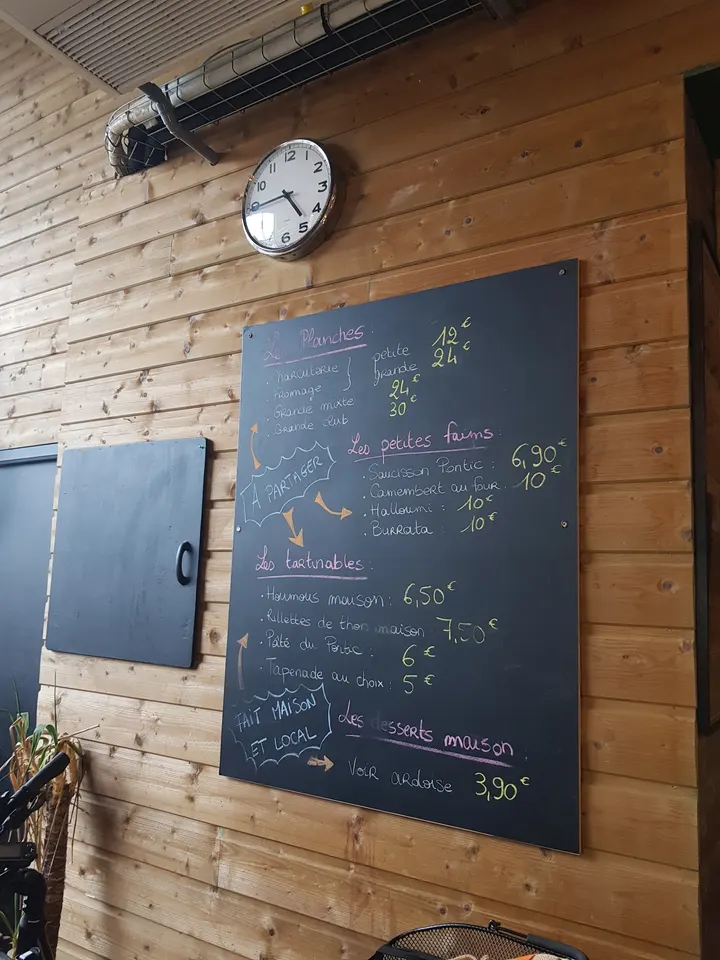 12
1
2
3
4
5
6
9
10
11
Les Planches :
. charcuterie } petite 12€
. Fromage } grande 24€
. Grande mixte 24€
. Grande club 30€
À PARTAGER
Les petites faims :
. Saucisson Pontic : 6,90€
. Camembert au four : 10€
. Halloumi : 10€
. Burrata : 10€
Les tartinables :
. Houmous maison : 6,50€
. Rillettes de thon maison 7,50€
. Pâté du Pontic : 6€
. Tapenade au choix : 5€
FAIT MAISON
ET LOCAL
Les desserts maison
VOIR ardoise 3,90€